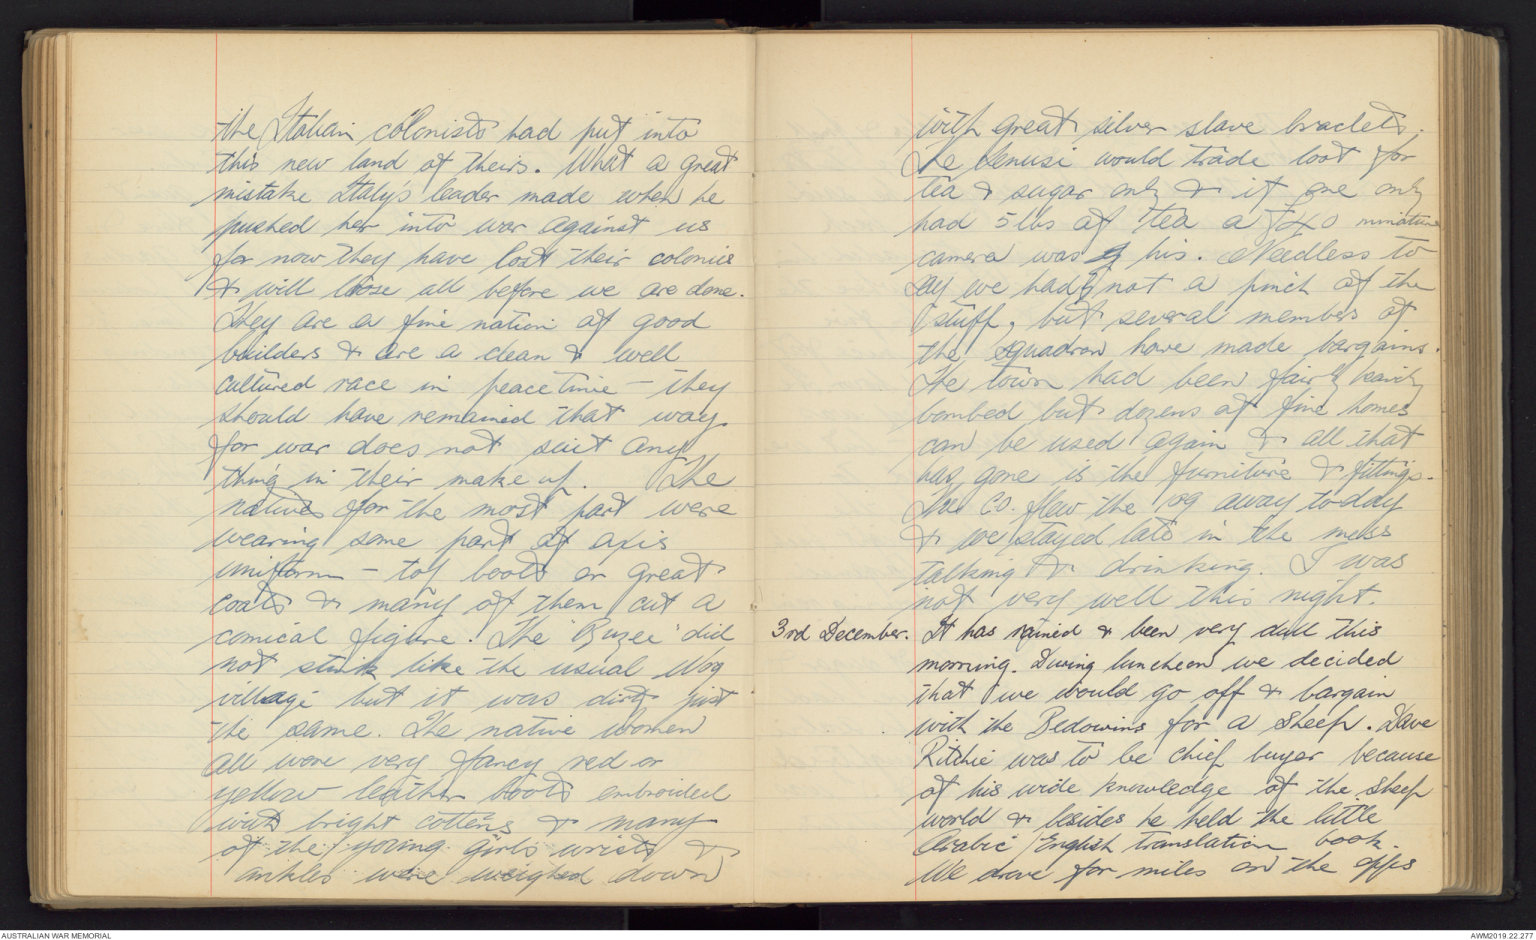 the Italian colonists had put into
this new land of theirs. What a great
mistake Italy's leader made when he
pushed her into war against us
for now they have lost their colonies
& will loose all before we are done.
They are a fine nation of good
builders & are a clean & well
cultured race in peace time - they
should have remained that way
for war does not suit any
thing in their make up. The
natives for the most part were
wearing some part of axis
uniform - top boots or great
coats & many of them cut a
comical figure. The "Buzee" did
not stink like the usual Wog
village but it was dirty just
the same. The native women
all wore very fancy red or
yellow leather boots embroided
with bright cottens & many
of the young girls wrists &
ankles were weighed down
with great silver slave braclets.
The Senusi would trade loot for
tea & sugar only & if one only
had 5 lbs of tea a £40 miniature
camera was his. Needless to
say we had not a pinch of the
stuff, but several members of
the squadron have made bargains.
The town had been fairly heavily
bombed but dozens of fine homes
can be used again & all that
has gone is the furniture & fittings.
The C.O. flew the 109 away today
& we stayed late in the mess
talking & drinking. I was
not very well this night.
3rd December. It has rained & been very dull this
morning. During luncheon we decided
that we would go off & bargain
with the Bedowins for a sheep. Dave
Ritchie was to be chief buyer because
of his wide knowledge of the sheep
world & besides he held the little
Arabic English translation book.
We drove for miles on the
AUSTRALIAN WAR MEMORIAL
AWM2019.22.277